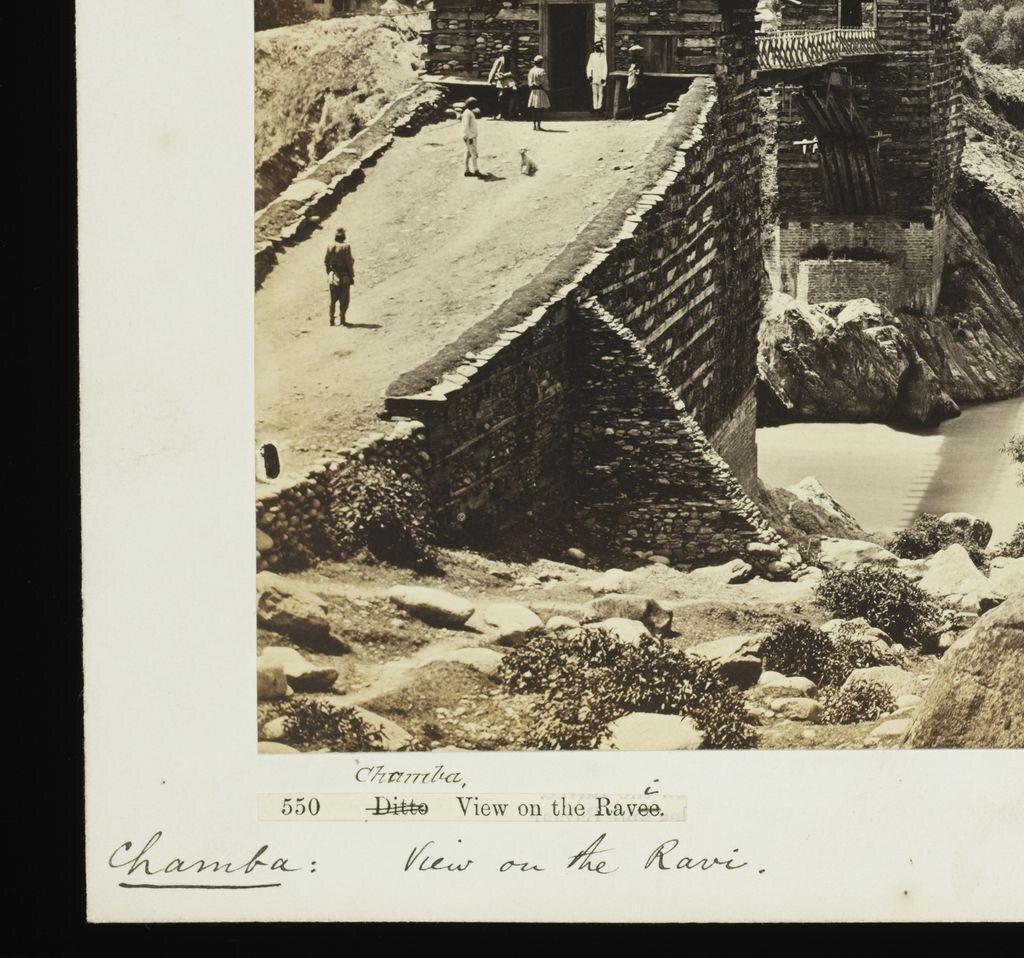 Chamba,
550 Ditto View on the Ravee. i
Chamba: View on the Ravi.